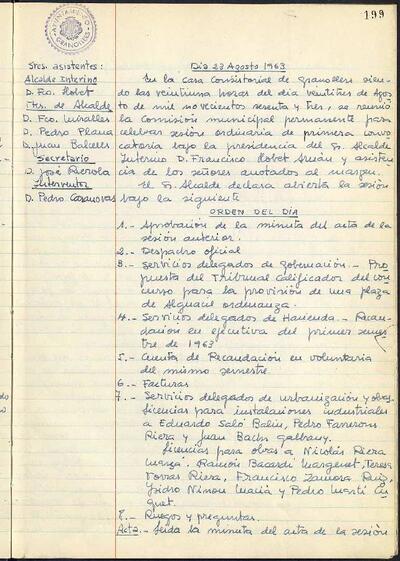 199
AYUNTAMIENTO
GRANOLLERS
Sres. asistentes:
Alcalde Interino
D. Fco. Llobet
Ttes. de Alcalde
D. Fco.
D. Pedro Plana
D. Juan
Secretario
D. José
Interventor
D. Pedro Casanovas
Día 23 Agosto 1963
En la casa Consistorial de Granollers sien-
do las veintiuna horas del día veintitres de Agos-
to de mil novecientos sesenta y tres, se reunió
la Comisión municipal permanente para
celebrar sesión ordinaria de primera convo-
catoria bajo la presidencia del Sr. Alcalde
Interino D. Francisco Llobet Arnán y asisten-
cia de los señores anotados al margen.
El Sr. Alcalde declara abierta la sesión
bajo la siguiente
ORDEN DEL DÍA
1.- Aprobación de la minuta del acta de la
sesión anterior.
2.- Despacho oficial
3.- Servicios delegados de Gobernación.- Pro-
puesta del Tribunal Calificador del con-
curso para la provisión de una plaza
de Alguacil ordenanza.
4.- Servicios delegados de Hacienda.- Recau-
dación en ejecutiva del primer semes-
tre de 1963
5.- Cuenta de Recaudación en voluntaria
del mismo semestre.
6.- Facturas
7.- Servicios delegados de urbanización y obras
licencias para instalaciones industriales
a Eduardo Saló Baliu, Pedro Farrerons
Riera y Juan Bachs Galbany.
Licencias para obras a Nicolás Riera
Manzá. Ramón Bacardí Margenet, Teresa
Torras Riera, Francisco Zamora Ruiz,
Isidro Ninou Macià y Pedro Martí
guet.
8.- Ruegos y preguntas.
Acta.- Leida la minuta del acta de la sesión